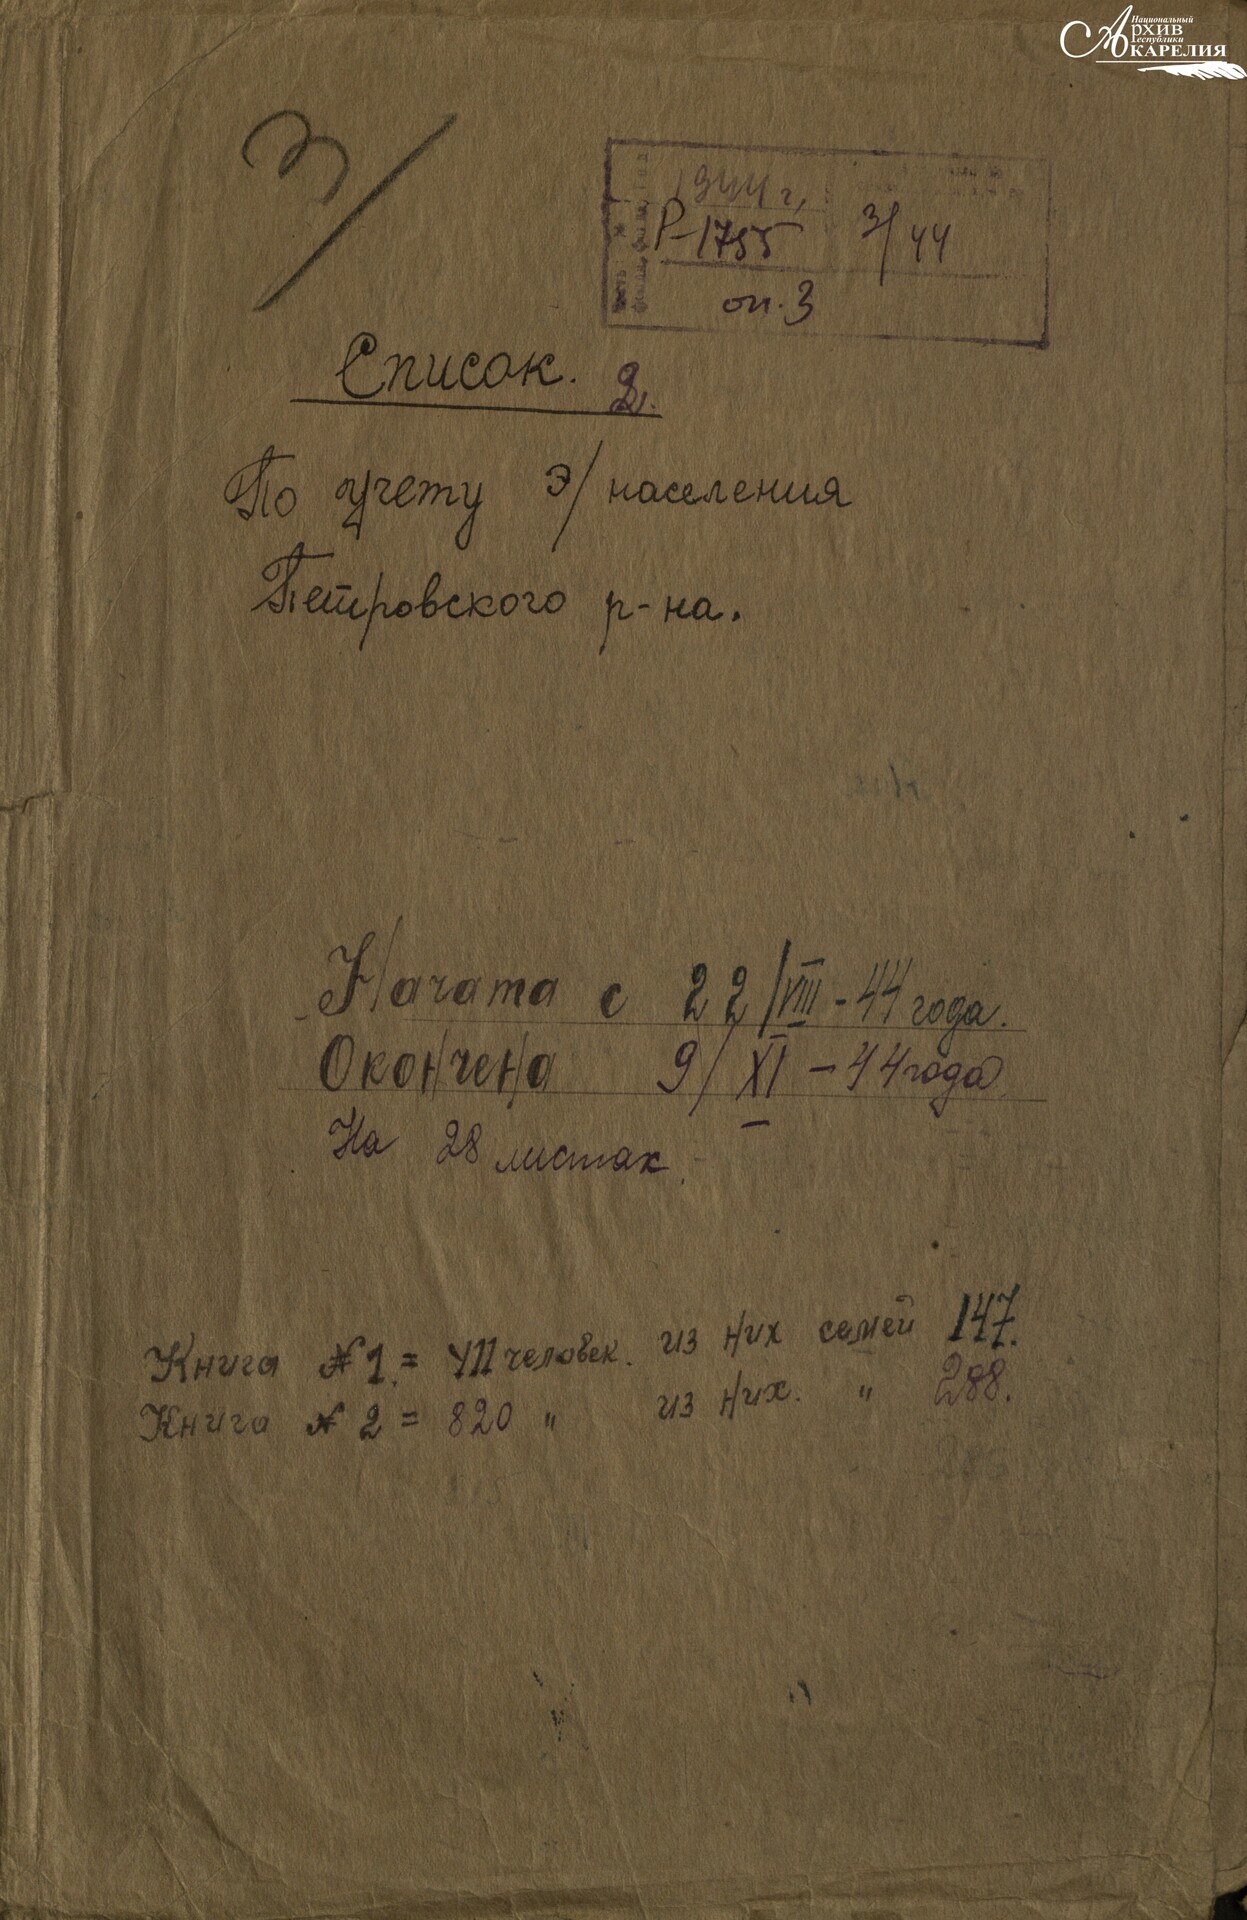 Национальный
Архив
Республики
КАРЕЛИЯ
3/
1944 г.
Р-1755 3/44
оп. 3
Список. 2.
По учету э/населения
Петровского р-на.
Начата с 22/VIII-44 года.
Окончена 9/XI-44 года
На 28 листах.
Книга № 1 = человек. из них семей 147.
Книга № 2 = 820 " из них. " 288.